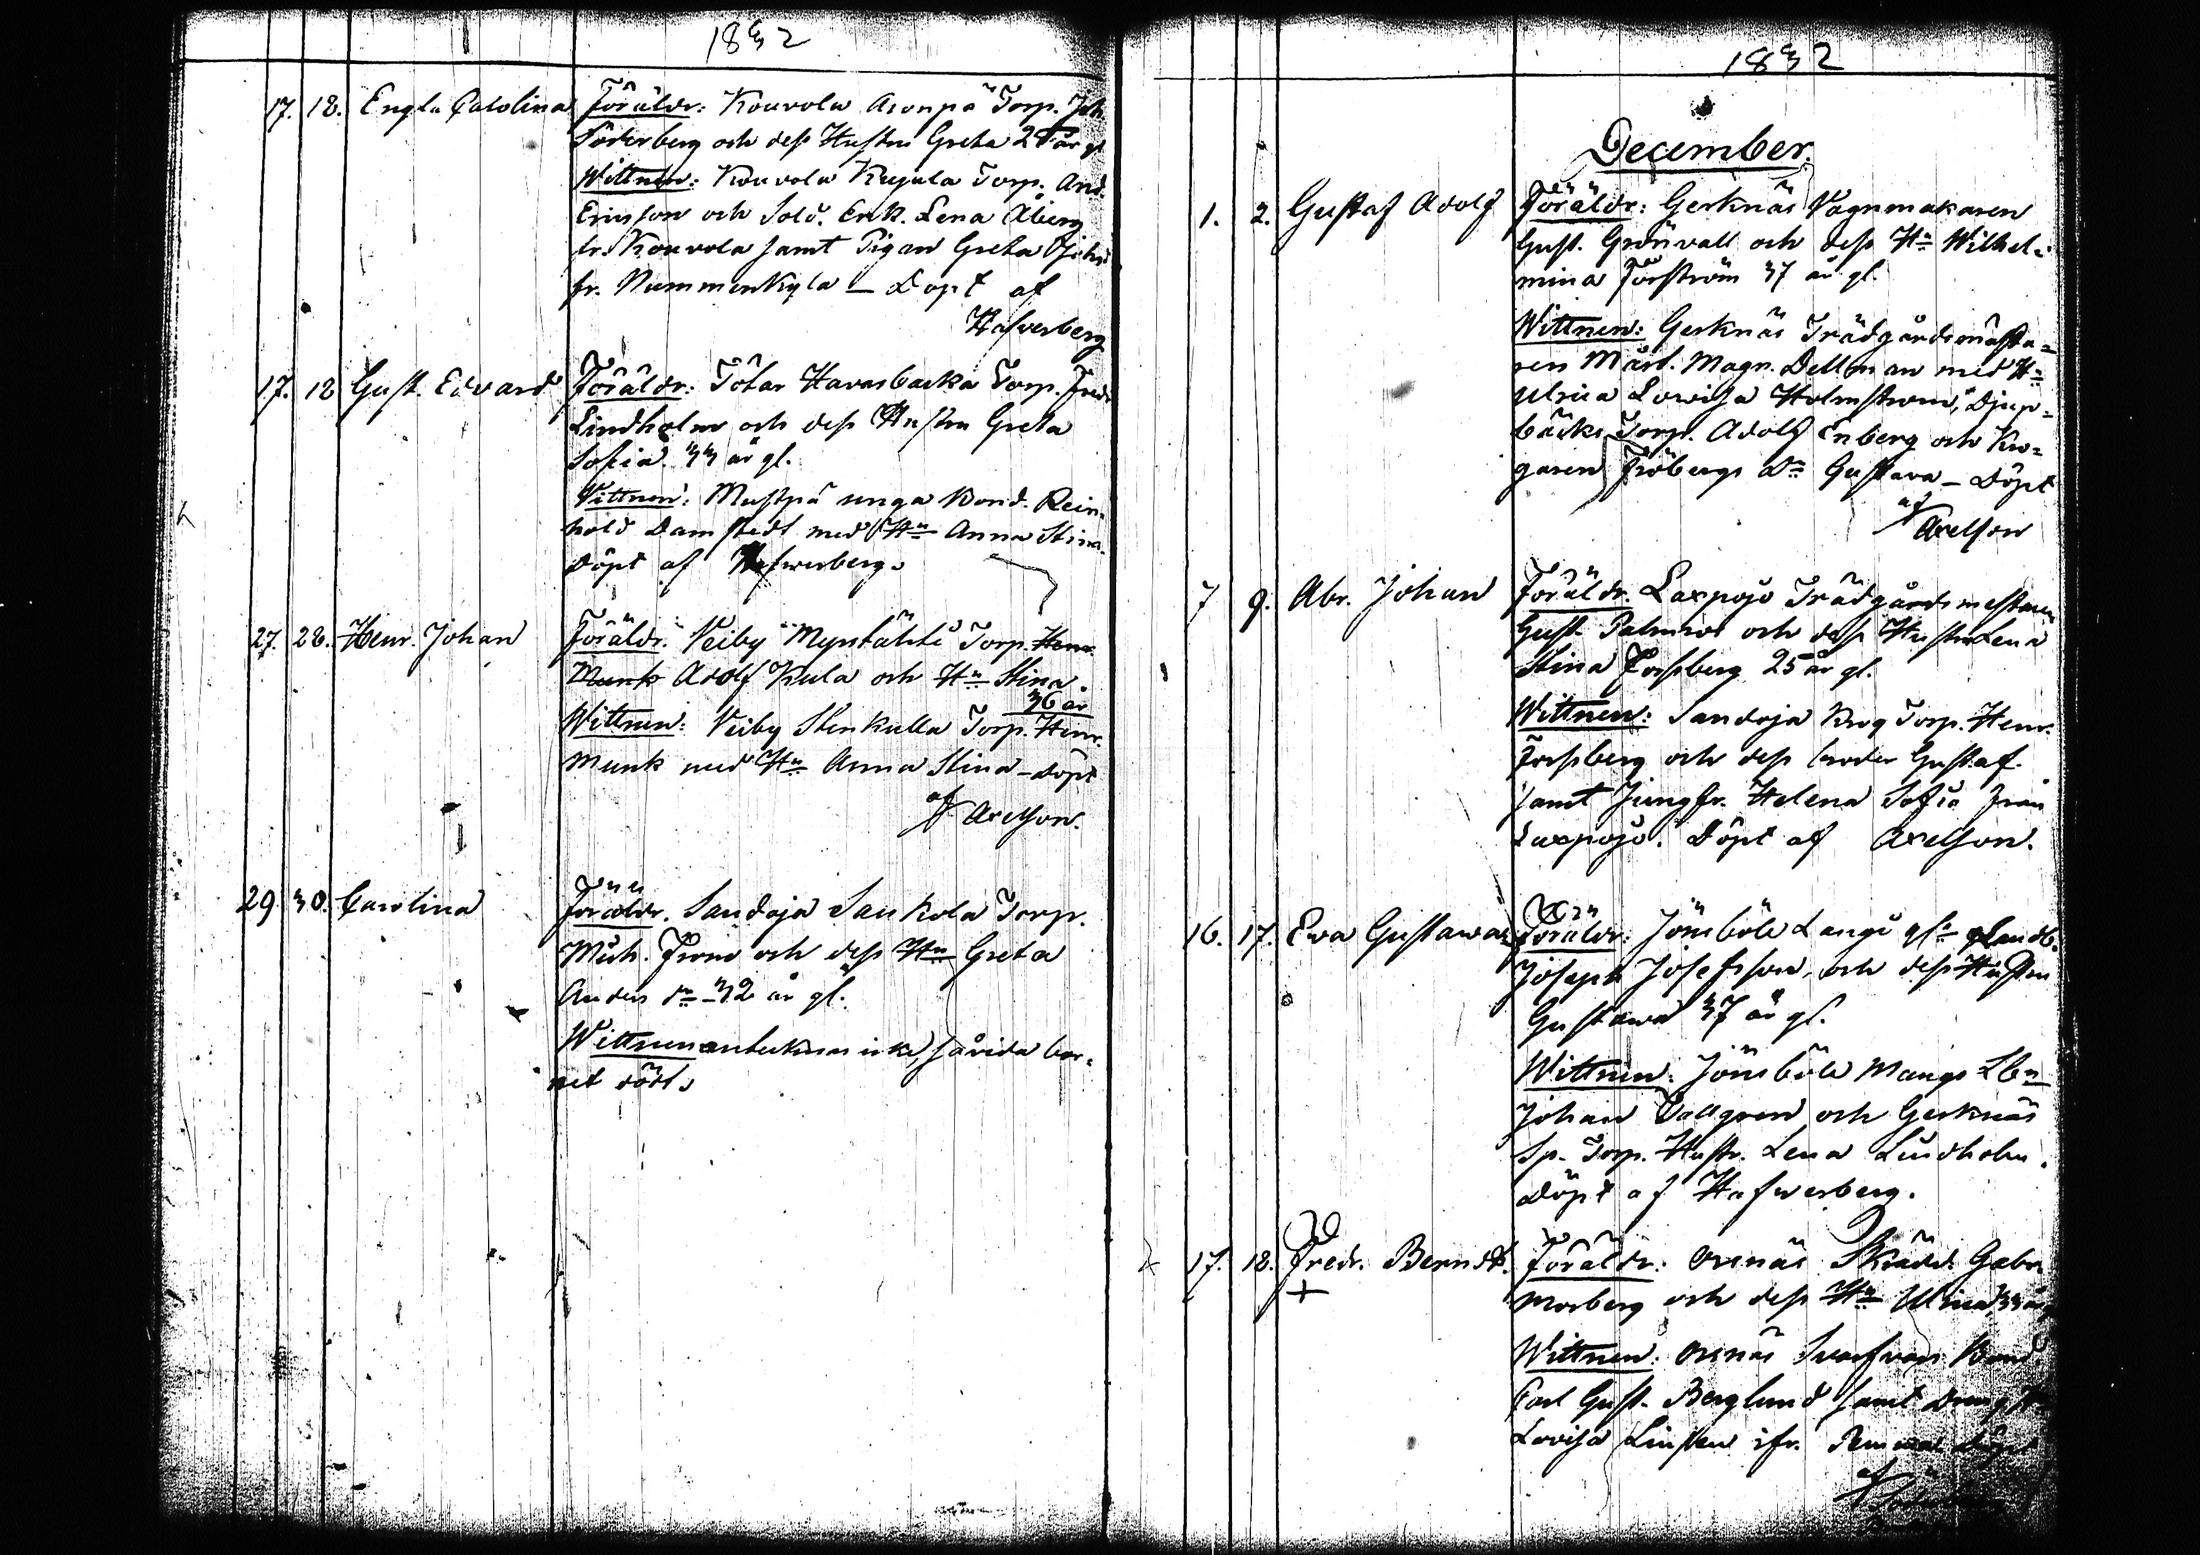 1832
17. 18. Engla Carolina Föräldr: Kouvola Aronpä Torp. Joh.
Söderberg och dess Hustru Greta 28 år gl
Wittnen: Kouvola Kujala Torp. And.
Ericsson och Sold. Enk. Lena Åberg
fr. Kouvola samt Pigan Greta
fr. Nummenkyla – Döpt af
Hafverberg
17. 18 Gust. Edvard Föräldr: Tötar Harasbacka Torp. Fredr
Lindholm och dess Hustru Greta
Sofia. 33 år gl.
Vittnen: Mustpä unga Bond. Rein-
hold Damstedt med Hu Anna Stina.
Döpt af Hafwerberg.
27. 28. Henr. Johan Föräldr: Veiby Torp. Henr.
Munk Adolf Kula och Hu Stina.
36 år
Wittnen: Veiby Stenkulla Torp. Henr.
Munk med Hu Anna Stina – Döpt
af Axelson.
29 30. Carolina Föräldr. Sandoja Sankola Torp.
Mich. och dess Hu Greta
Anders dr 32 år gl.
Wittnen antecknas icke, såvida bar-
net dödt.
1832
December.
1. 2. Gustaf Adolf Föräldr: Gerknäs Vagnmakaren
Gust. Grönvall och dess Hu Wilhel-
mina Forström 37 år gl.
Wittnen: Gerknäs Trädgårdsmästa-
ren Mårt. Magn. Dellman med Hu
Ulrica Lowisa Holmström, Djup-
bäcks Torp. Adolf Enberg och Kro-
garen Fröbergs dr Gustava – Döpt
af
Axelson
7 9. Abr. Johan Föräldr. Laxpojo Trädgårdsmestaren
Gust. Palmros och dess Hustru Lena
Stina Forsberg 25 år gl.
Wittnen: Sandoja Krog Torp. Henr.
Forsberg och dess broder Gustaf.
samt Jungfr. Helena Sofia från
Laxpojo. Döpt af Axelson.
16. 17. Ewa Gustawa Föräldr: Jönsböle Langs Landb.
Joseph Josefsson, och dess Hustru
Gustawa 37 år gl.
Wittnen: Jönsböle Mangs Lbn
Johan Dallgren och Gerknäs
Sp. Torp. Hustr. Lena Lindholm.
Döpt af Hafwerberg.
17. 18. Fredr. Berndt. Föräldr: Ornäs Skrädd. Gabr.
+ Morberg och dess Hu Ulrica 33 år
Wittnen: Ornäs Bond
Carl Gust. Berglund samt
Lovisa
af